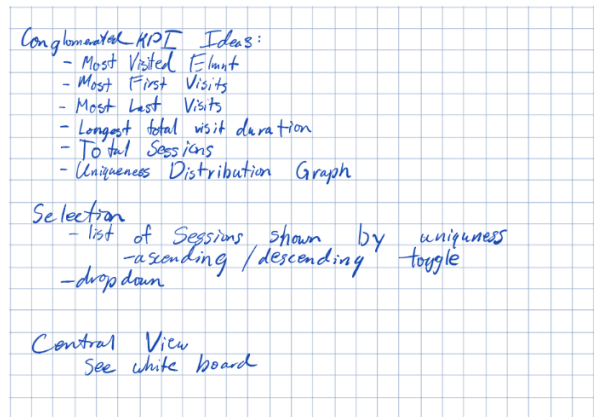 Conglomerated KPI Ideas:
- Most Visited Elmnt
- Most First Visits
- Most Last Visits
- Longest total visit duration
- Total Sessions
- Uniqueness Distribution Graph
Selection
- list of Sessions shown by uniquness
- ascending / descending toggle
- dropdown
Central View
See white board